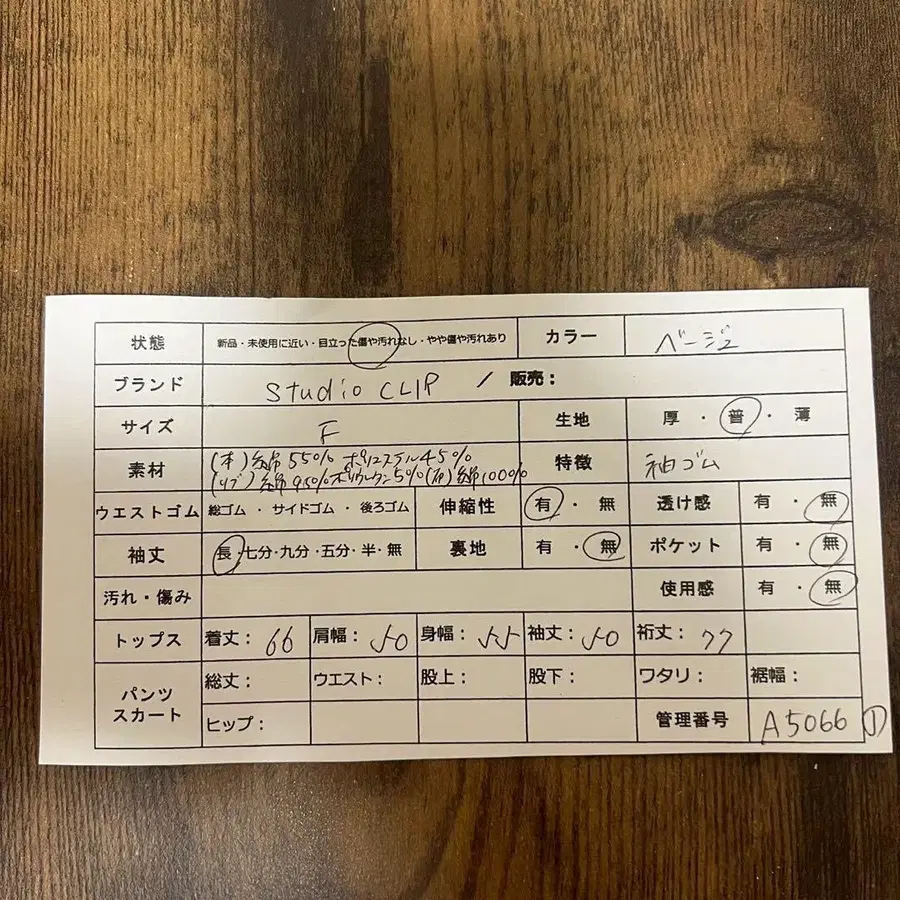 状態 新品・未使用に近い・目立った傷や汚れなし・やや傷や汚れあり カラー ベージュ
ブランド studio CLIP / 販売：
サイズ F 生地 厚・普・薄
素材 (本)綿55% ポリエステル45%
(リブ)綿95%ポリウレタン5%(布)綿100% 特徴 袖ゴム
ウエストゴム 総ゴム・サイドゴム・後ろゴム 伸縮性 有・無 透け感 有・無
袖丈 長・七分・九分・五分・半・無 裏地 有・無 ポケット 有・無
汚れ・傷み 使用感 有・無
トップス 着丈：66 肩幅：50 身幅：55 袖丈：50 裄丈：77
パンツ 総丈： ウエスト： 股上： 股下： ワタリ： 裾幅：
スカート ヒップ： 管理番号 A5066 ①